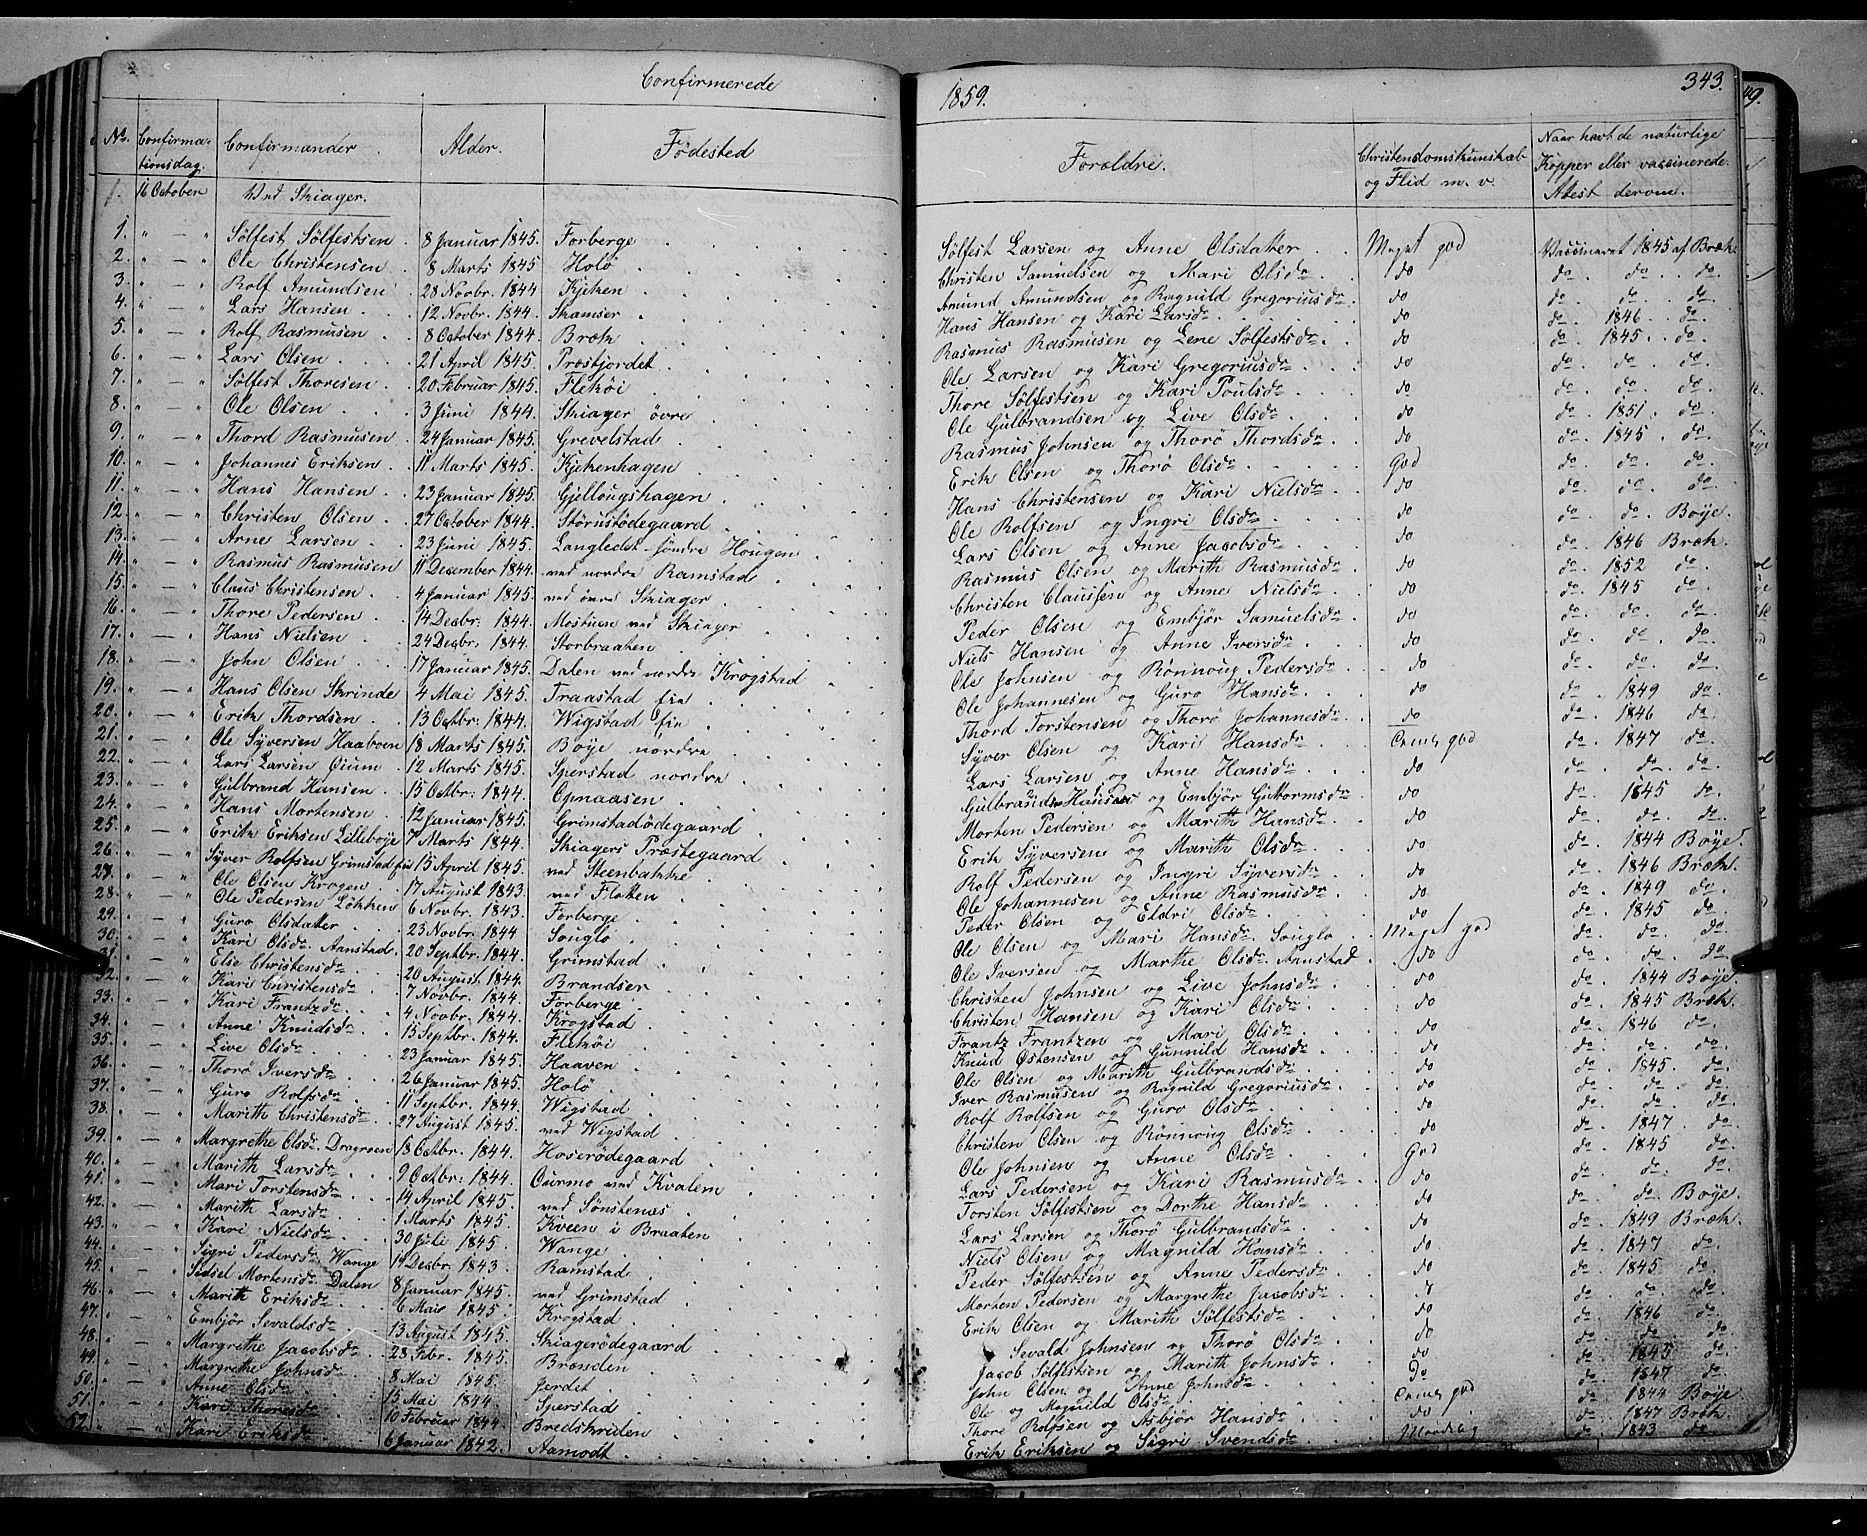 Confirmerede
1859.
343.
No. Confirmationsdag. Confirmander Alder. Födested Forældre. Christendomskundskab og Flid m. v. Naar havt de naturlige Kopper eller vaccinerede. Atest derom.
16 October Ved Skiager.
1. " — " Sölfest Sölfestsen 8 Januar 1845. Forberge Sölfest Larsen og Anne Olsdatter Meget god Vaccineret 1845 af Bræk.
2. " — " Ole Christensen 8 Marts 1845 Holö Christen Samuelsen og Mari Olsdr do do. do. do.
3. " — " Rolf Amundsen 28 Novbr. 1844 Kjeken Amund Amundsen og Ragnild Gregoriusdr do do. do. do.
4. " — " Lars Hansen 12 Novbr. 1844. Skamser Hans Hansen og Kari Larsdr do do. 1846 do.
5. " — " Rolf Rasmusen 8 October 1844. Bræk Rasmus Rasmusen og Lene Sölfestsdr do do. 1845. do.
6. " — " Lars Olsen 21 April 1845. Prostjordet Ole Larsen og Kari Gregoriusdr do do. do. do.
7. " — " Sölfest Thoresen 20 Februar 1845. Fleköi Thore Sölfestsen og Kari Poulsdr do do. do. do.
8. " — " Ole Olsen 3 Juni 1844. Skiager övre Ole Gulbrandsen og Live Olsdr do do. 1851. do.
9. " — " Thord Rasmusen 24 Januar 1845. Grevelstad Rasmus Johnsen og Thorö Thordsdr do do. 1845. do.
10. " — " Johannes Eriksen 11 Marts 1845. Kjekenhagen Erik Olsen og Thorö Olsdr God do. do. do.
11. " — " Hans Hansen 23 Januar 1845. Gjellougshagen Hans Christensen og Kari Nielsdr do do. do. do.
12. " — " Christen Olsen 27 October 1844. Störustödegaard Ole Rolfsen og Ingri Olsdr do do. do. Boye.
13. " — " Arne Larsen 23 Juni 1845. Langledet söndre Hougen Lars Olsen og Anne Jacobsdr do do. 1846 Bræk.
14. " — " Rasmus Rasmusen 11 December 1844. ved nordre Ramstad Rasmus Olsen og Marith Rasmusdr do do. 1852 do.
15. " — " Claus Christensen 4 Januar 1845. ved övre Skiager Christen Clausen og Anne Nielsdr do do. 1845 do.
16. " — " Thore Pedersen 14 Decbr. 1844. Mostuen ved Skiager Peder Olsen og Embjör Samuelsdr do do. do. do.
17. " — " Hans Nielsen 24 Decbr. 1844. Storbraaten Niels Hansen og Anne Iversdr do do. do. do.
18. " — " John Olsen 17 Januar 1845. Dalen ved nordre Krogstad Ole Johnsen og Rönnoug Pedersdr do do. do. do.
19. " — " Hans Olsen Skrinde 4 Mai 1845. Traastad fin Ole Johannesen og Guro Hansdr do do. 1849 do.
20. " — " Erik Thordsen 13 Octbr. 1844. Wigstad fin Thord Torstensen og Thorö Johannesdr do do. 1846 do.
21. " — " Ole Syversen Haaboen 18 Marts 1845. Boye nordre Syver Olsen og Kari Hansdr Temmelig god do. 1847 do.
22. " — " Lars Larsen Öium 12 Marts 1845. Sperstad nordre Lars Larsen og Anne Hansdr do do. do. do.
23. " — " Gulbrand Hansen 15 Octbr. 1844. Opnaasen Gulbrand Hansen og Embjör Guttormsdr do do. 1845 do.
24. " — " Hans Mortensen 12 Januar 1845. Grimstadödegaard Morten Pedersen og Marith Hansdr do do. do. do.
25. " — " Erik Eriksen Lilleboye 7 Marts 1844. Skiagers Prostegaard Erik Syversen og Marith Olsdr do do. 1844 Boye.
26. " — " Syver Rolfsen Grimstad fin 15 April 1845. ved Steenbakke Rolf Pedersen og Ingri Syversdr do do. 1846 Bræk.
27. " — " Ole Olsen Krogen 17 August 1843. ved Flotten Ole Johannesen og Anne Rasmusdr do do. 1849 do.
28. " — " Ole Pedersen Lökken 6 Novbr. 1843. Forberge Peder Olsen og Eldri Olsdr do do. 1845 do.
29. " — " Guro Olsdatter 23 Novbr. 1844 Souglö Ole Olsen og Mari Hansdr Souglo Meget god do. do. do.
30. " — " Kari Olsdr Aanstad 20 Septbr. 1844. Grimstad Ole Iversen og Marthe Olsdr Aanstad do do. do. do
31. " — " Elie Christensdr 20 August 1844. Brandser Christen Johnsen og Live Johnsdr do do. 1844 Boye.
32. " — " Kari Christensdr 7 Novbr. 1844. Forberge Christen Hansen og Kari Olsdr do do. 1845 Bræk.
33. " — " Kari Frantzdr 4 Novbr. 1844. Krogstad Frantz Frantzen og Mari Olsdr do do. 1846 do.
34. " — " Anne Knudsdr 15 Septbr. 1844. Fleköi Knud Östensen og Gunnild Hansdr do do. do. do.
35. " — " Live Olsdr 23 Januar 1845. Haaven Ole Olsen og Marith Gulbrandsdr do do. 1845. do.
36. " — " Thorö Iversdr 26 Januar 1845. Holö Iver Rasmusen og Ragnild Gregoriusdr do do. do. do.
37. " — " Guro Rolfsdr 11 Septbr. 1844. Wigstad Rolf Rolfsen og Guro Olsdr do do. do. do.
38. " — " Marith Christensdr 27 August 1845. ved Wigstad Christen Olsen og Rönnoug Olsdr do do. 1847. do.
39. " — " Margrethe Olsdr Dragroen 18 Octbr. 1844. Hoserödegaard Ole Johnsen og Anne Olsdr God do. 1845 do.
40. " — " Marith Larsdr 9 Octbr. 1844. Ourmo ved Kvalem Lars Pedersen og Kari Rasmusdr do do. do. do.
41. " — " Mari Torstensdr 14 April 1845. ved Sönstenæs Torsten Sölfestsen og Dorthe Hansdr do do. do. Boye.
42. " — " Marith Larsdr 1 Marts 1845. Kveen i Braaten Lars Larsen og Thorö Gulbrandsdr do do. 1849 Bræk.
43. " — " Kari Nielsdr 30 Juli 1845. Wange Niels Olsen og Magnild Hansdr do do. 1847 do.
44. " — " Sigri Pedersdr Wange 19 Decbr. 1843. Ramstad Peder Sölfestsen og Anne Pedersdr do do. 1845 do.
45. " — " Sidsel Mortensdr Dalen 8 Januar 1845. ved Grimstad Morten Pedersen og Margrethe Jacobsdr do do. do. do.
46. " — " Marith Eriksdr 6 Mai 1845. Krogstad Erik Olsen og Marith Sölfestsdr do do. 1846 do.
47. " — " Embjör Sevaldsdr 13 August 1845. Skiagerödegaard Sevald Johnsen og Thorö Olsdr do do. do. do.
48. " — " Margrethe Jacobsdr 28 Febr. 1845. Brenden Jacob Sölfestsen og Marith Johnsdr do do. 1845 do.
49. " — " Margrethe Johnsdr 8 Mai 1845. Jordet John Olsen og Anne Johnsdr Do do. 1847 do.
50. " — " Anne Olsdr 15 Mai 1844. Sperstad Ole og Magnild Olsdr Temmelig god do. 1844 Boye
51. " — " Kari Thoresdr 10 Februar 1844. Bredskriden Thore Rolfsen og Asbjör Hansdr do do. 1847 Bræk.
52. " — " Kari Eriksdr 6 Januar 1842. Aamodt Erik Eriksen og Sigri Svendsdr Maadelig do. 1843 do.